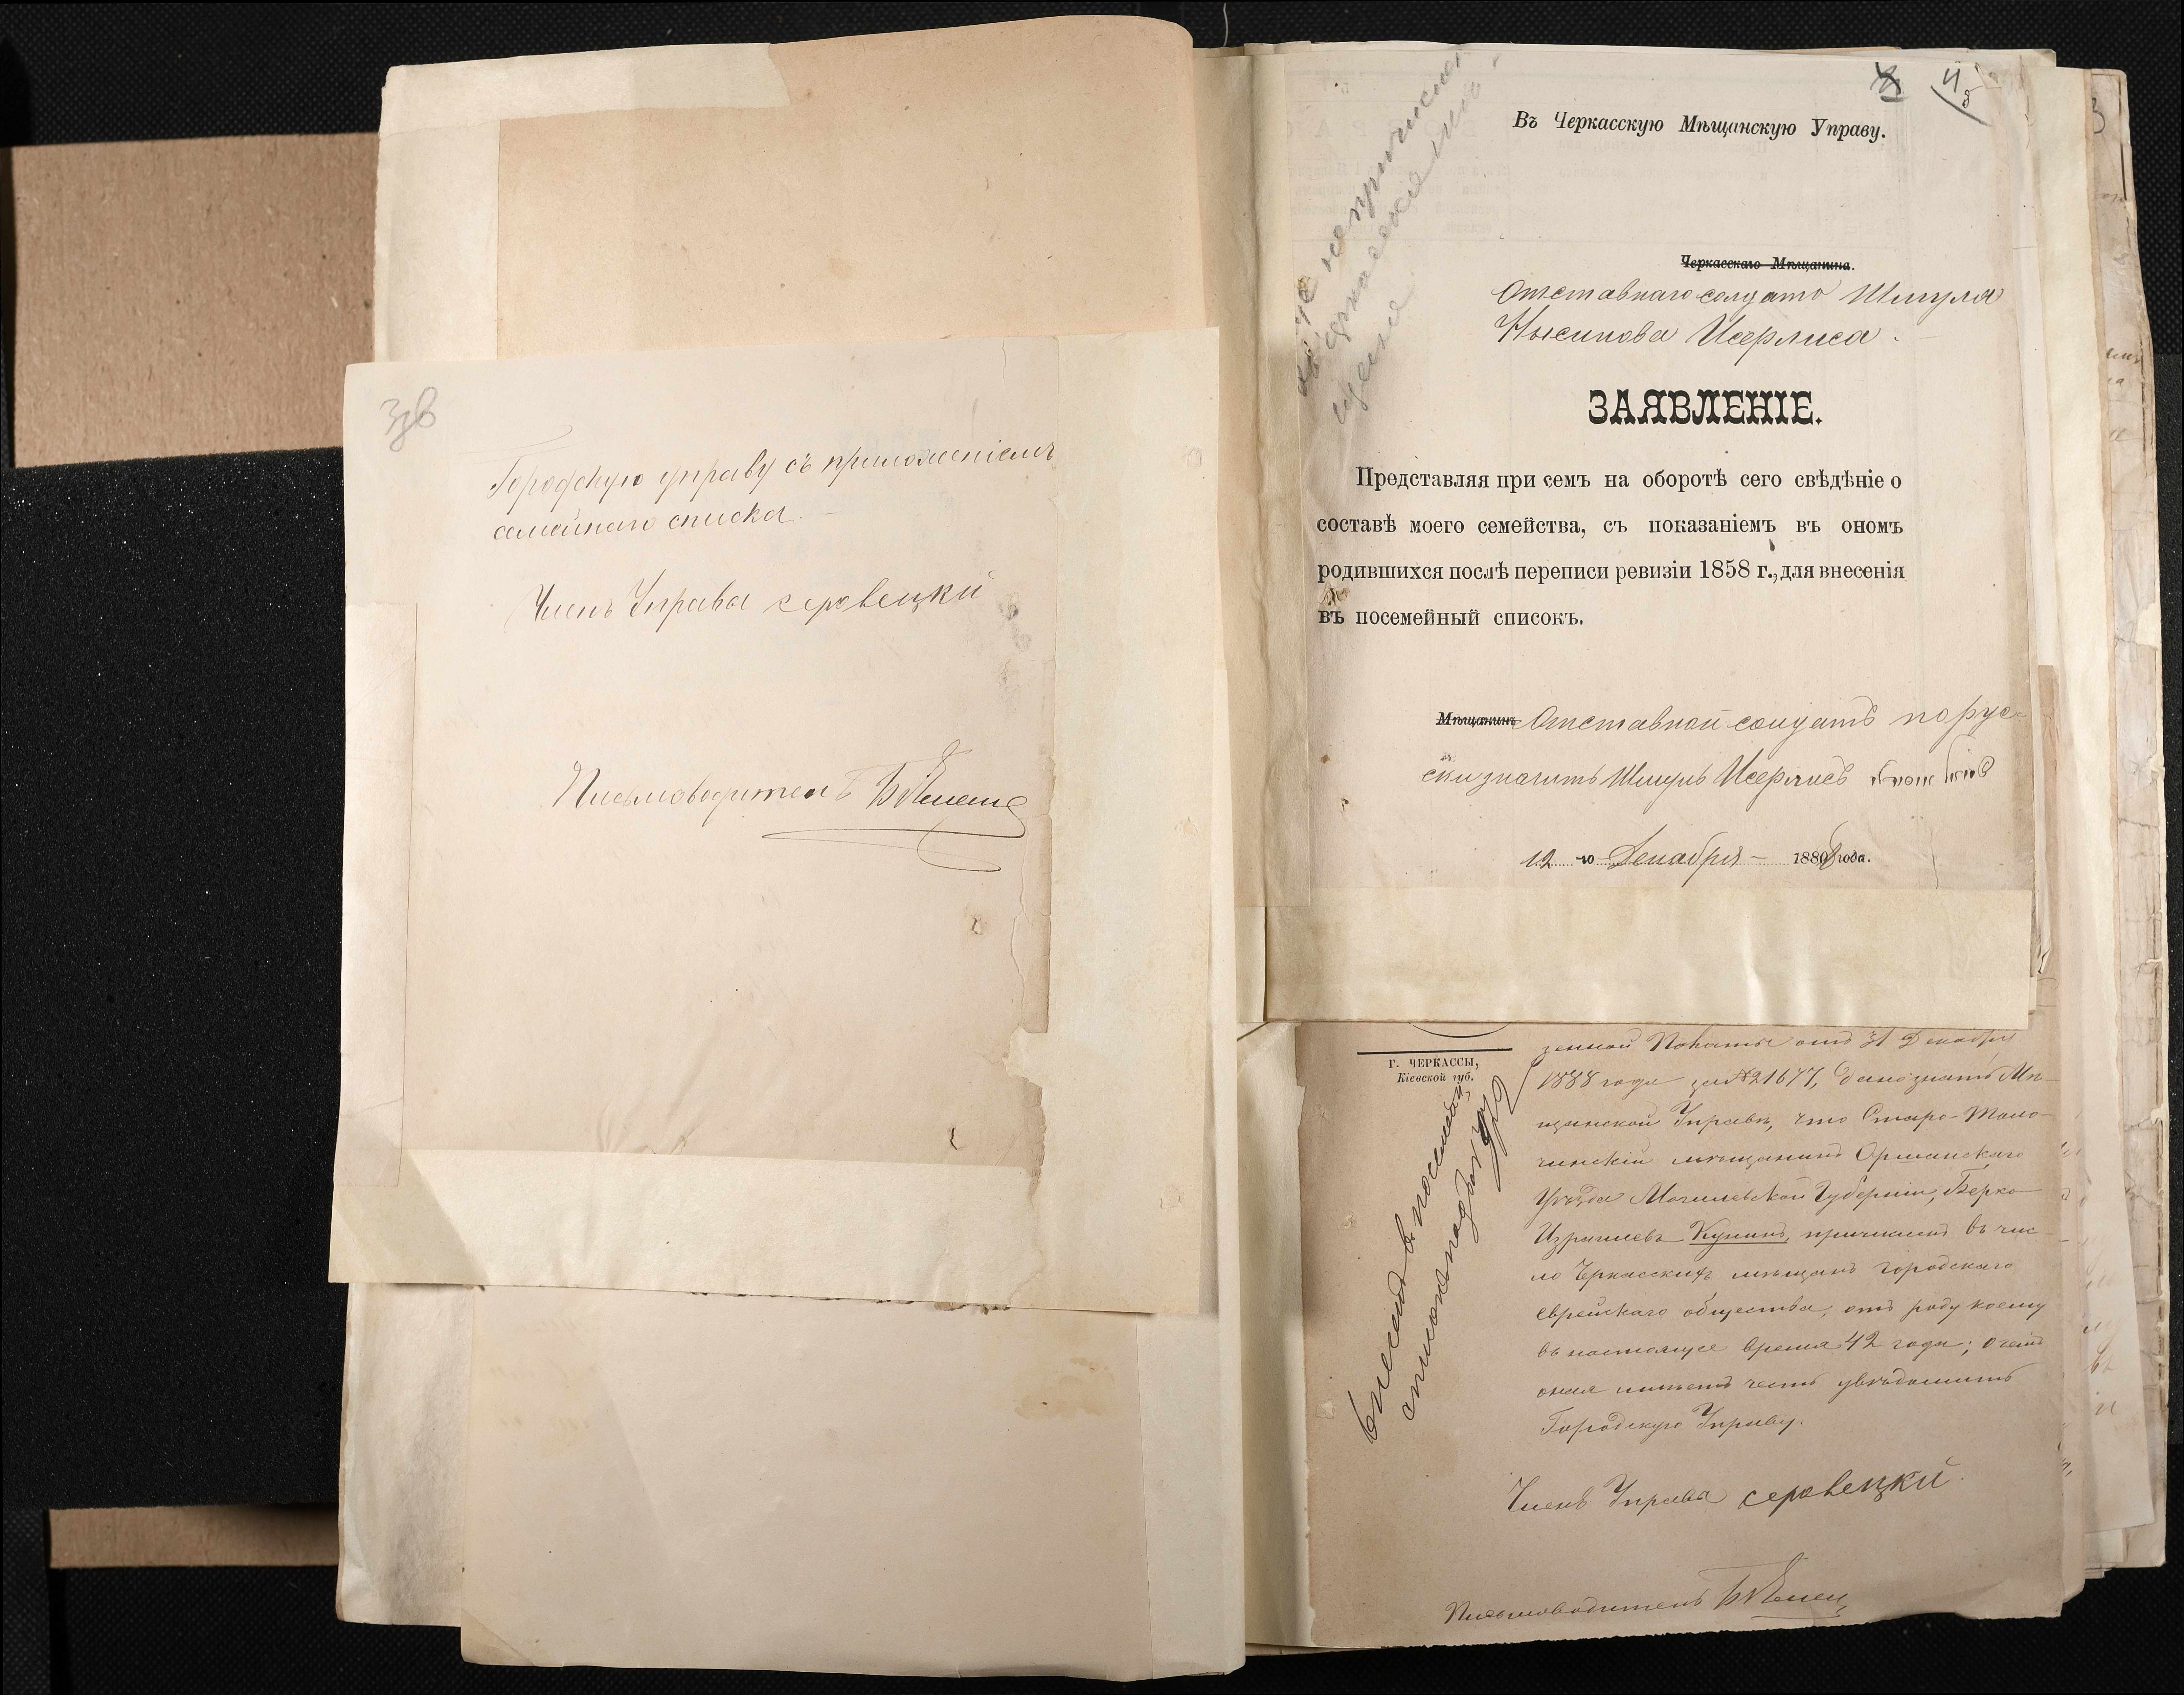 Городскую управу съ приложеніемъ
семейнаго списка.
Членъ Управы Серовецкій
Письмоводитель
Въ Черкасскую Мѣщанскую Управу.
Черкасскаго Мѣщанина.
Отставнаго солдата Шмуля
Исерлиса.
ЗАЯВЛЕНІЕ.
Представляя при семъ на оборотѣ сего свѣдѣніе о
составѣ моего семейства, съ показаніемъ въ ономъ
родившихся послѣ переписи ревизіи 1858 г., для внесенія
въ посемейный списокъ.
Мѣщанинъ Отставной солдатъ порус-
ски значитъ Шмуль Исерлисъ
12 -го Декабря 1888 года.
Г. ЧЕРКАССЫ,
Кіевской губ.
внесенъ въ посемейн
списокъ подъ №
зенной Палаты отъ 31 Декабря
1888 года за №21677, даетъ знать Мѣ-
щанской Управѣ, что Старо-Толо-
чинскій мѣщанинъ Оршанскаго
Уѣзда Могилевской Губерніи, Берко
Израилевъ Кунинъ, причисленъ въ чис-
ло Черкасскихъ мѣщанъ городскаго
еврейскаго общества, отъ роду коему
въ настоящее время 42 года; о чемъ
оная имѣетъ честь увѣдомить
Городскую Управу.
Членъ Управы Серовецкій.
Письмоводитель